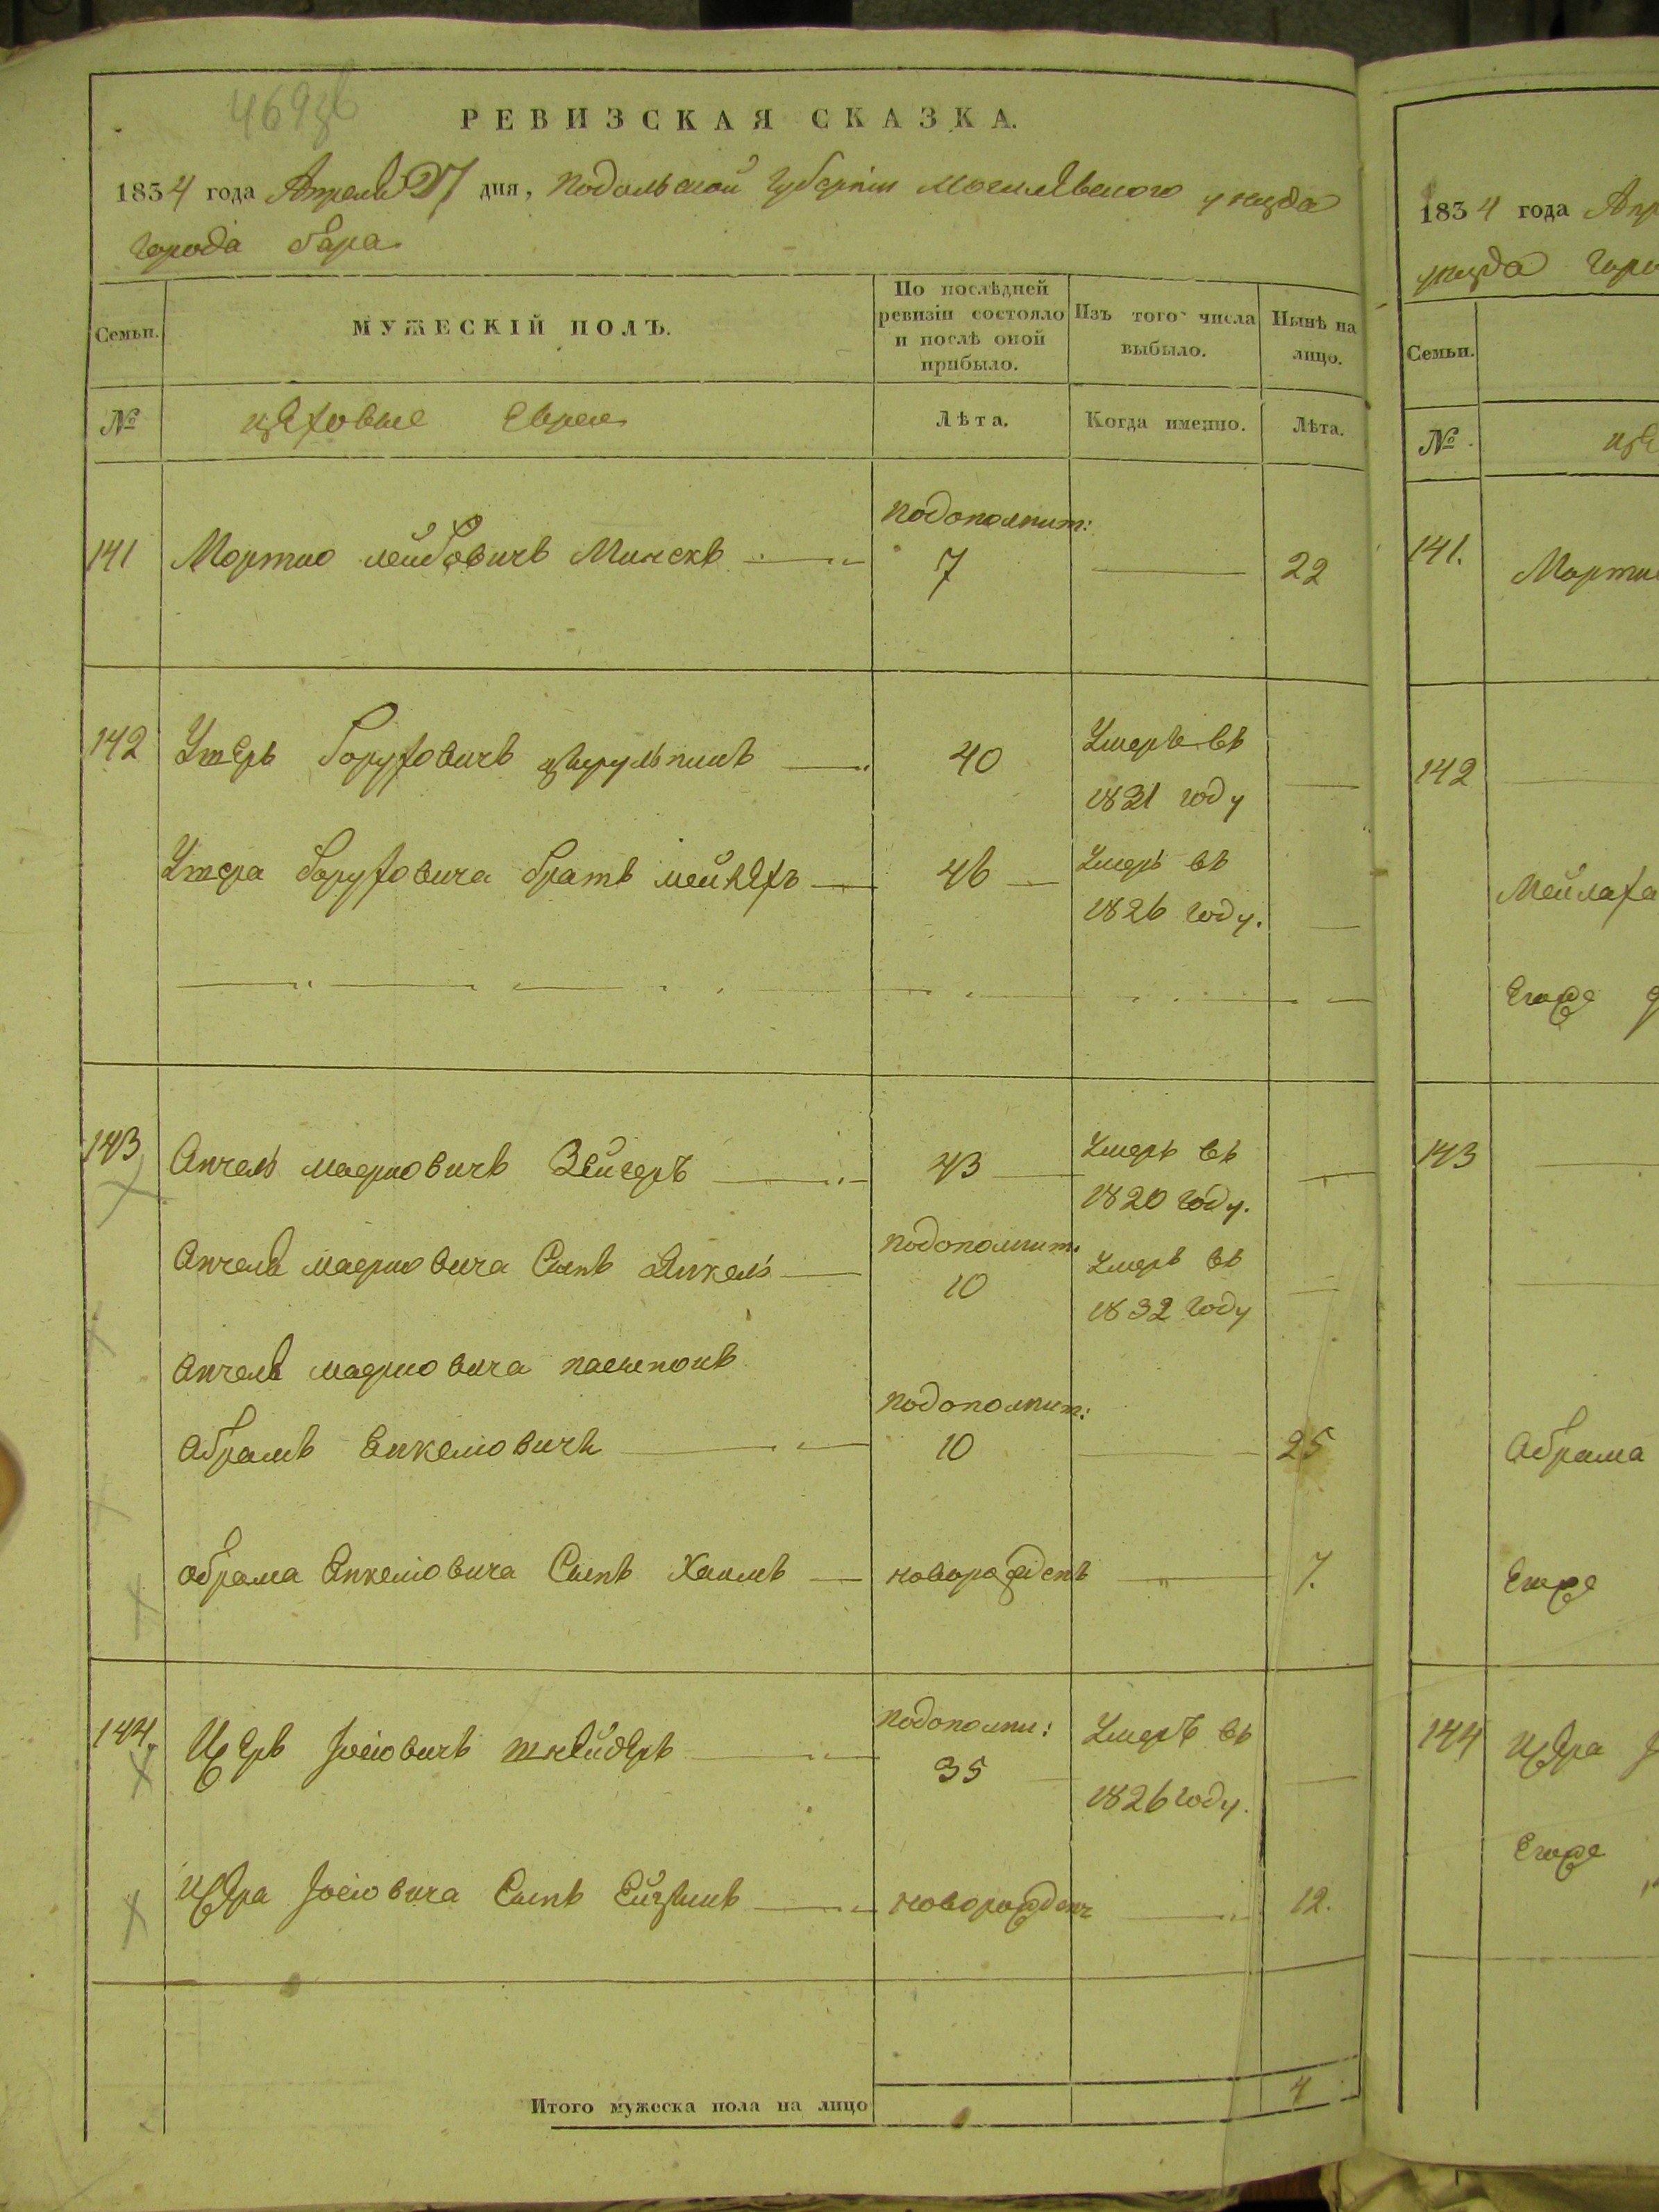 469об
РЕВИЗСКАЯ СКАЗКА.
1834 года Апреля 27 дня, Подольской Губернiи Могилевского уезда
города Бара
Семьи.
МУЖЕСКIЙ ПОЛЪ.
По послѣдней ревизiи состояло и послѣ оной прибыло.
Изъ того числа выбыло.
Нынѣ на лицо.
№
цеховые Евреи
Лѣта.
Когда именно.
Лѣта.
подополнит:
141 Мортко лейбовичъ 7 22
142 борухович 40 Умеръ въ
1831 году
боруховича братъ мейлехъ 46 Умеръ въ
1826 году.
143 Анчель маерковичъ Зейгеръ 43 Умеръ въ
1820 году.
Анчеля маерковича Сынъ Янкель подополнит: 10 Умеръ въ
1832 году
Анчеля маерковича пасынокъ
подополнит:
Абрамъ Янкелiовичъ 10 25
Абрама Янкелiовича Сынъ Хаимъ новорожденъ 7.
144. Iосiовичъ шнейдеръ подополни: 35 Умеръ въ
1826 году.
Iосiовича Сынъ новорожденъ 12.
Итого мужеска пола на лицо 4
1834 года Апр
уезда горо
Семьи.
№
це
141. Мортк
142
Мейлаха
Егоже
143
Абрама
Егоже
144
Егоже